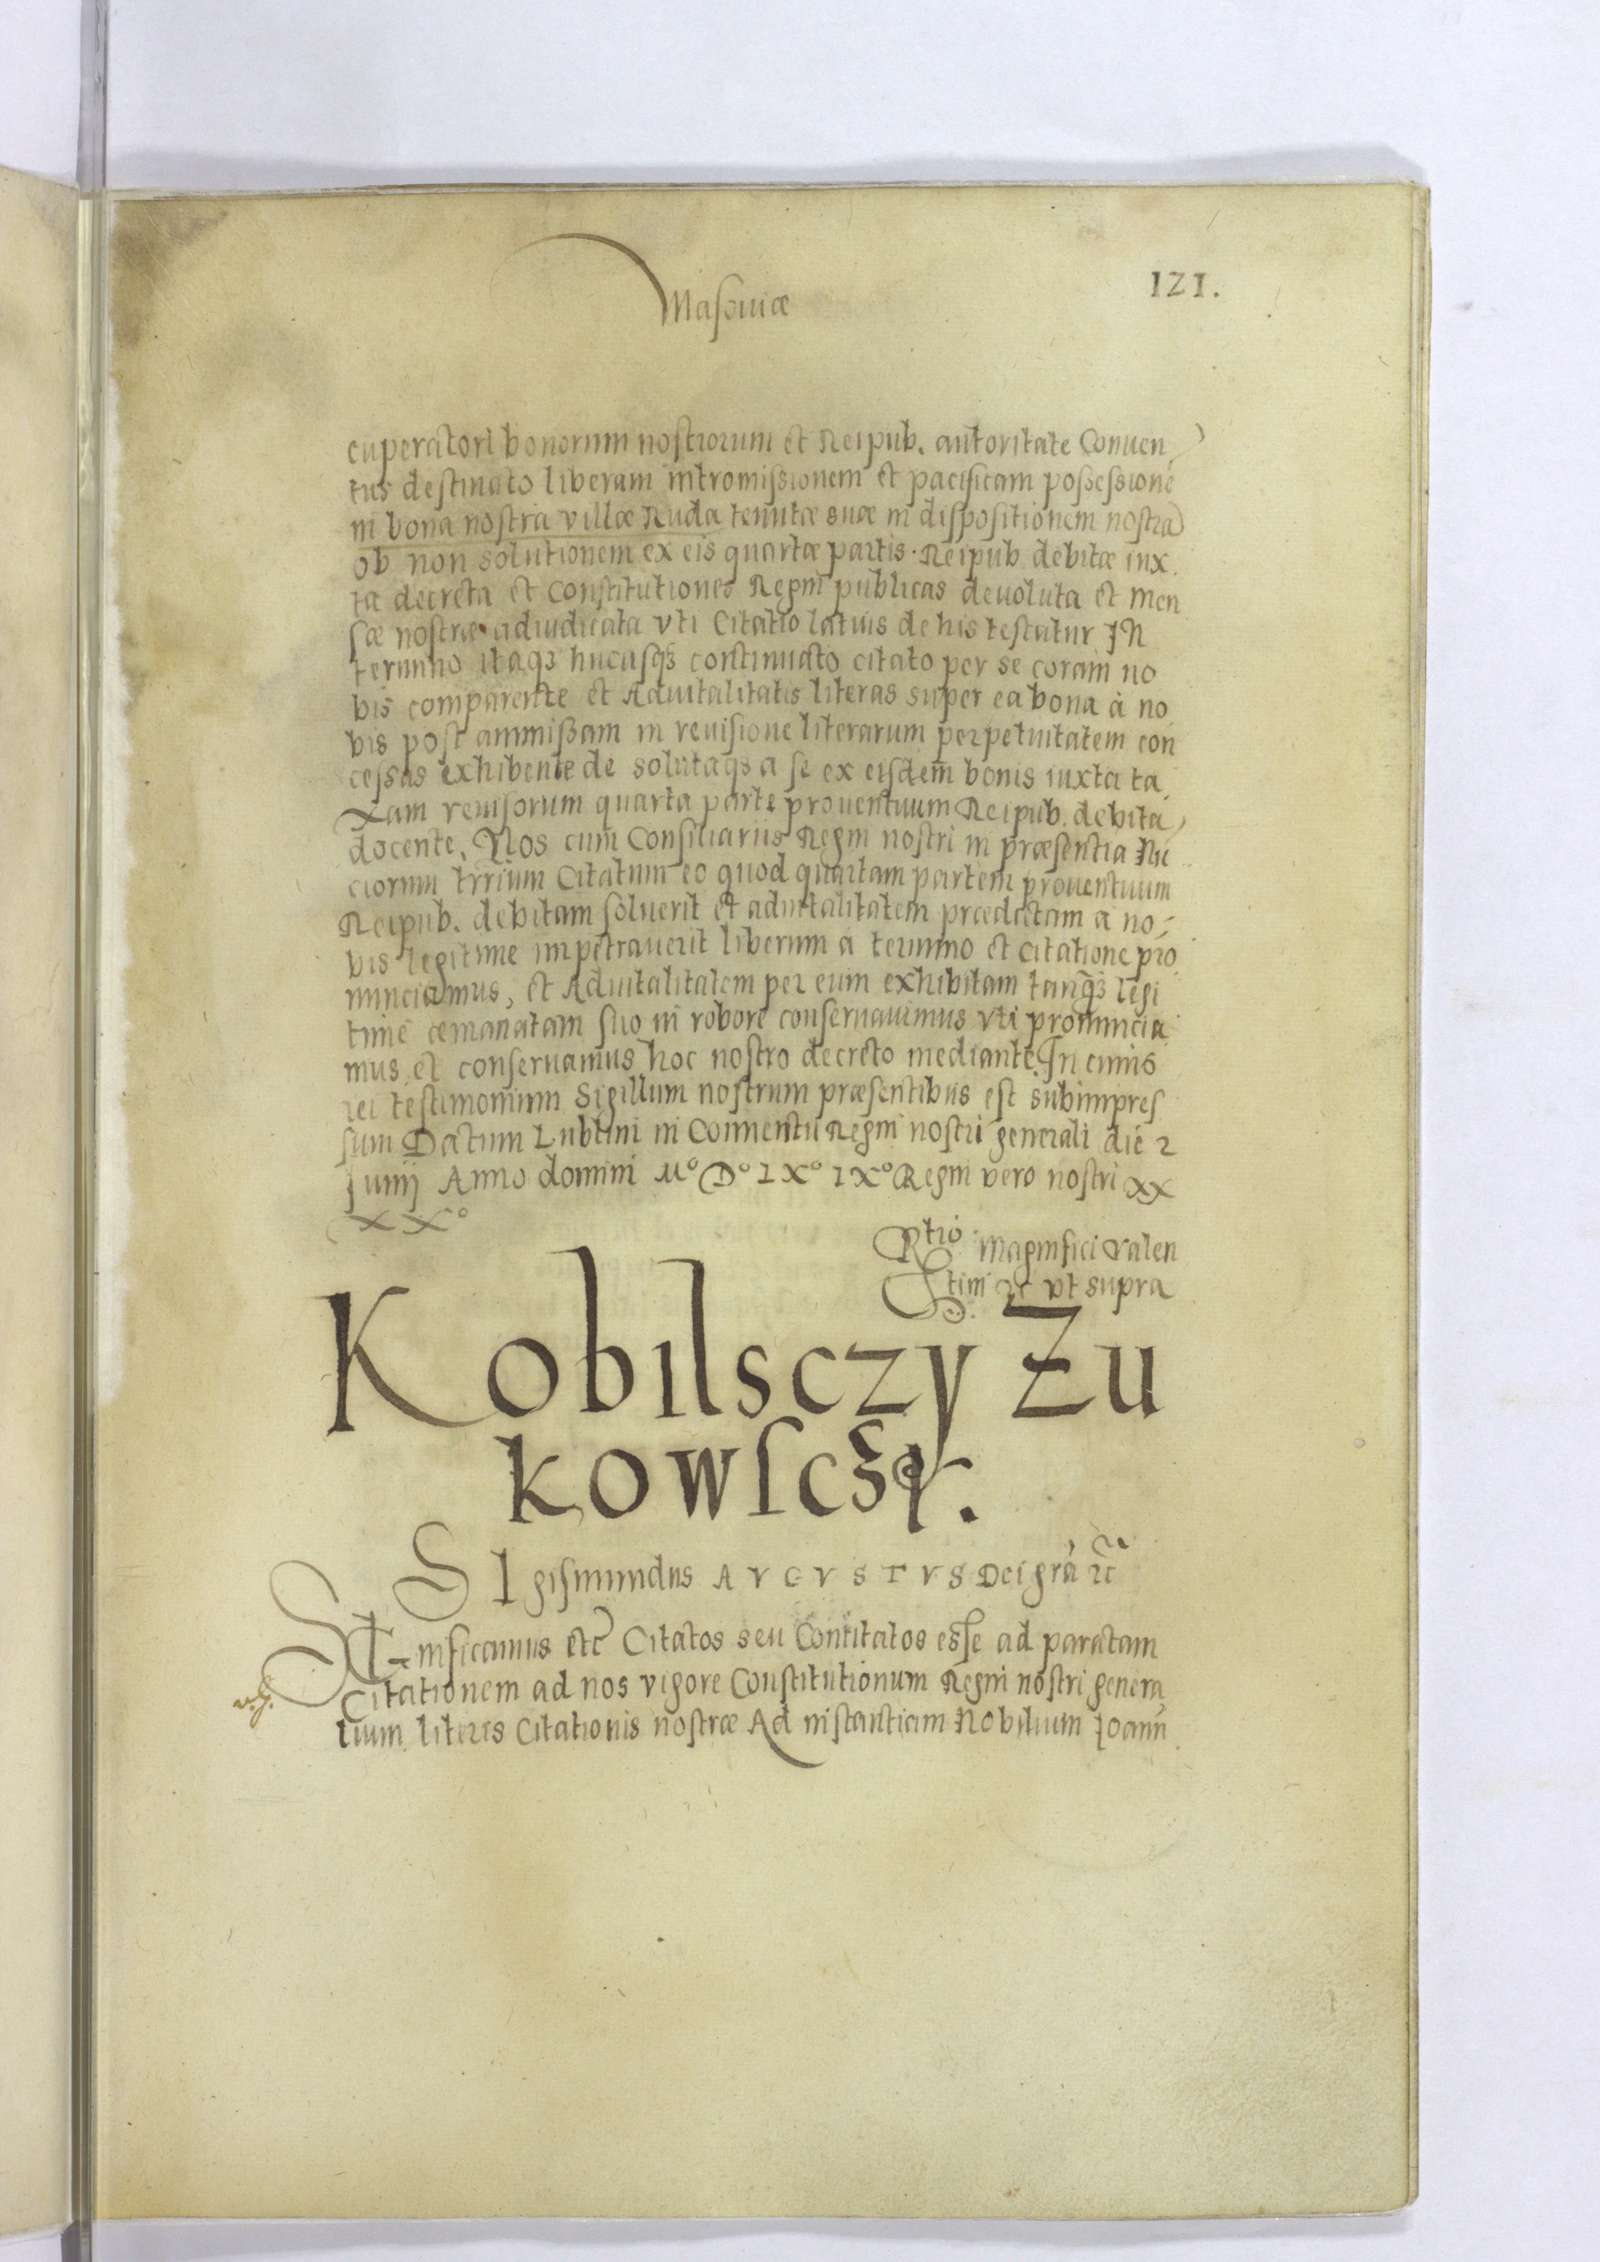 Masoviæ
121.
cuperatori bonorum nostrorum et Reipub. autoritate Conuen
tus destinato liberam intromissionem et pacificam possessionē
in bona nostra villæ Ruda tenutæ suæ in dispositionem nostrā
ob non solutionem ex eis quartæ partis Reipub. debitæ iux
ta decreta et Constitutiones Regni publicas deuoluta et men
sæ nostræ adiudicata vti Citatio latius de his testatur IN
termino itaqꝫ hucusqꝫ continuato citato per se coram no
bis comparente et Aduitalitatis literas super ea bona à no
bis post ammissam in reuisione literarum perpetuitatem con
cessas exhibente de solutaqꝫ a se ex eisdem bonis iuxta ta
xam reuisorum quarta parte prouentuum Reipub. debita
docente, Nos cum Consiliariis Regni nostri in præsentia Nū
ciorum trrium Citatum eo quod quartam partem prouentuum
Reipub. debitam soluerit et aduitalitatem prædictam a no-
bis legitime impetrauerit liberum a termino et citatione pro
nunciamus, et Aduitalitatem per eum exhibitam tanqꝫ legi
time emanatam suo in robore conseruauimus vti pronuncia
mus et conseruamus hoc nostro decreto mediante. In cuius
rei testimonium Sigillum nostrum præsentibus est subimpres
sum Datum Lublini in Conuentu Regni nostri generali die 2
Junij Anno domini Mº Dº LXº IXº Regni vero nostri XX
XXº
Rtio Magnifici Valen
tini ꝛc vt supra
Kobilsczy Zu
kowscży.
SIgismundus AVGVSTVS Dei grā ꝛc̄
SIGnificamus etc̄ Citatos seu Contitatos esse ad paratam
Citationem ad nos vigore Constitutionum Regni nostri genera
lium literis Citationis nostræ Ad instantiam Nobilium Joann